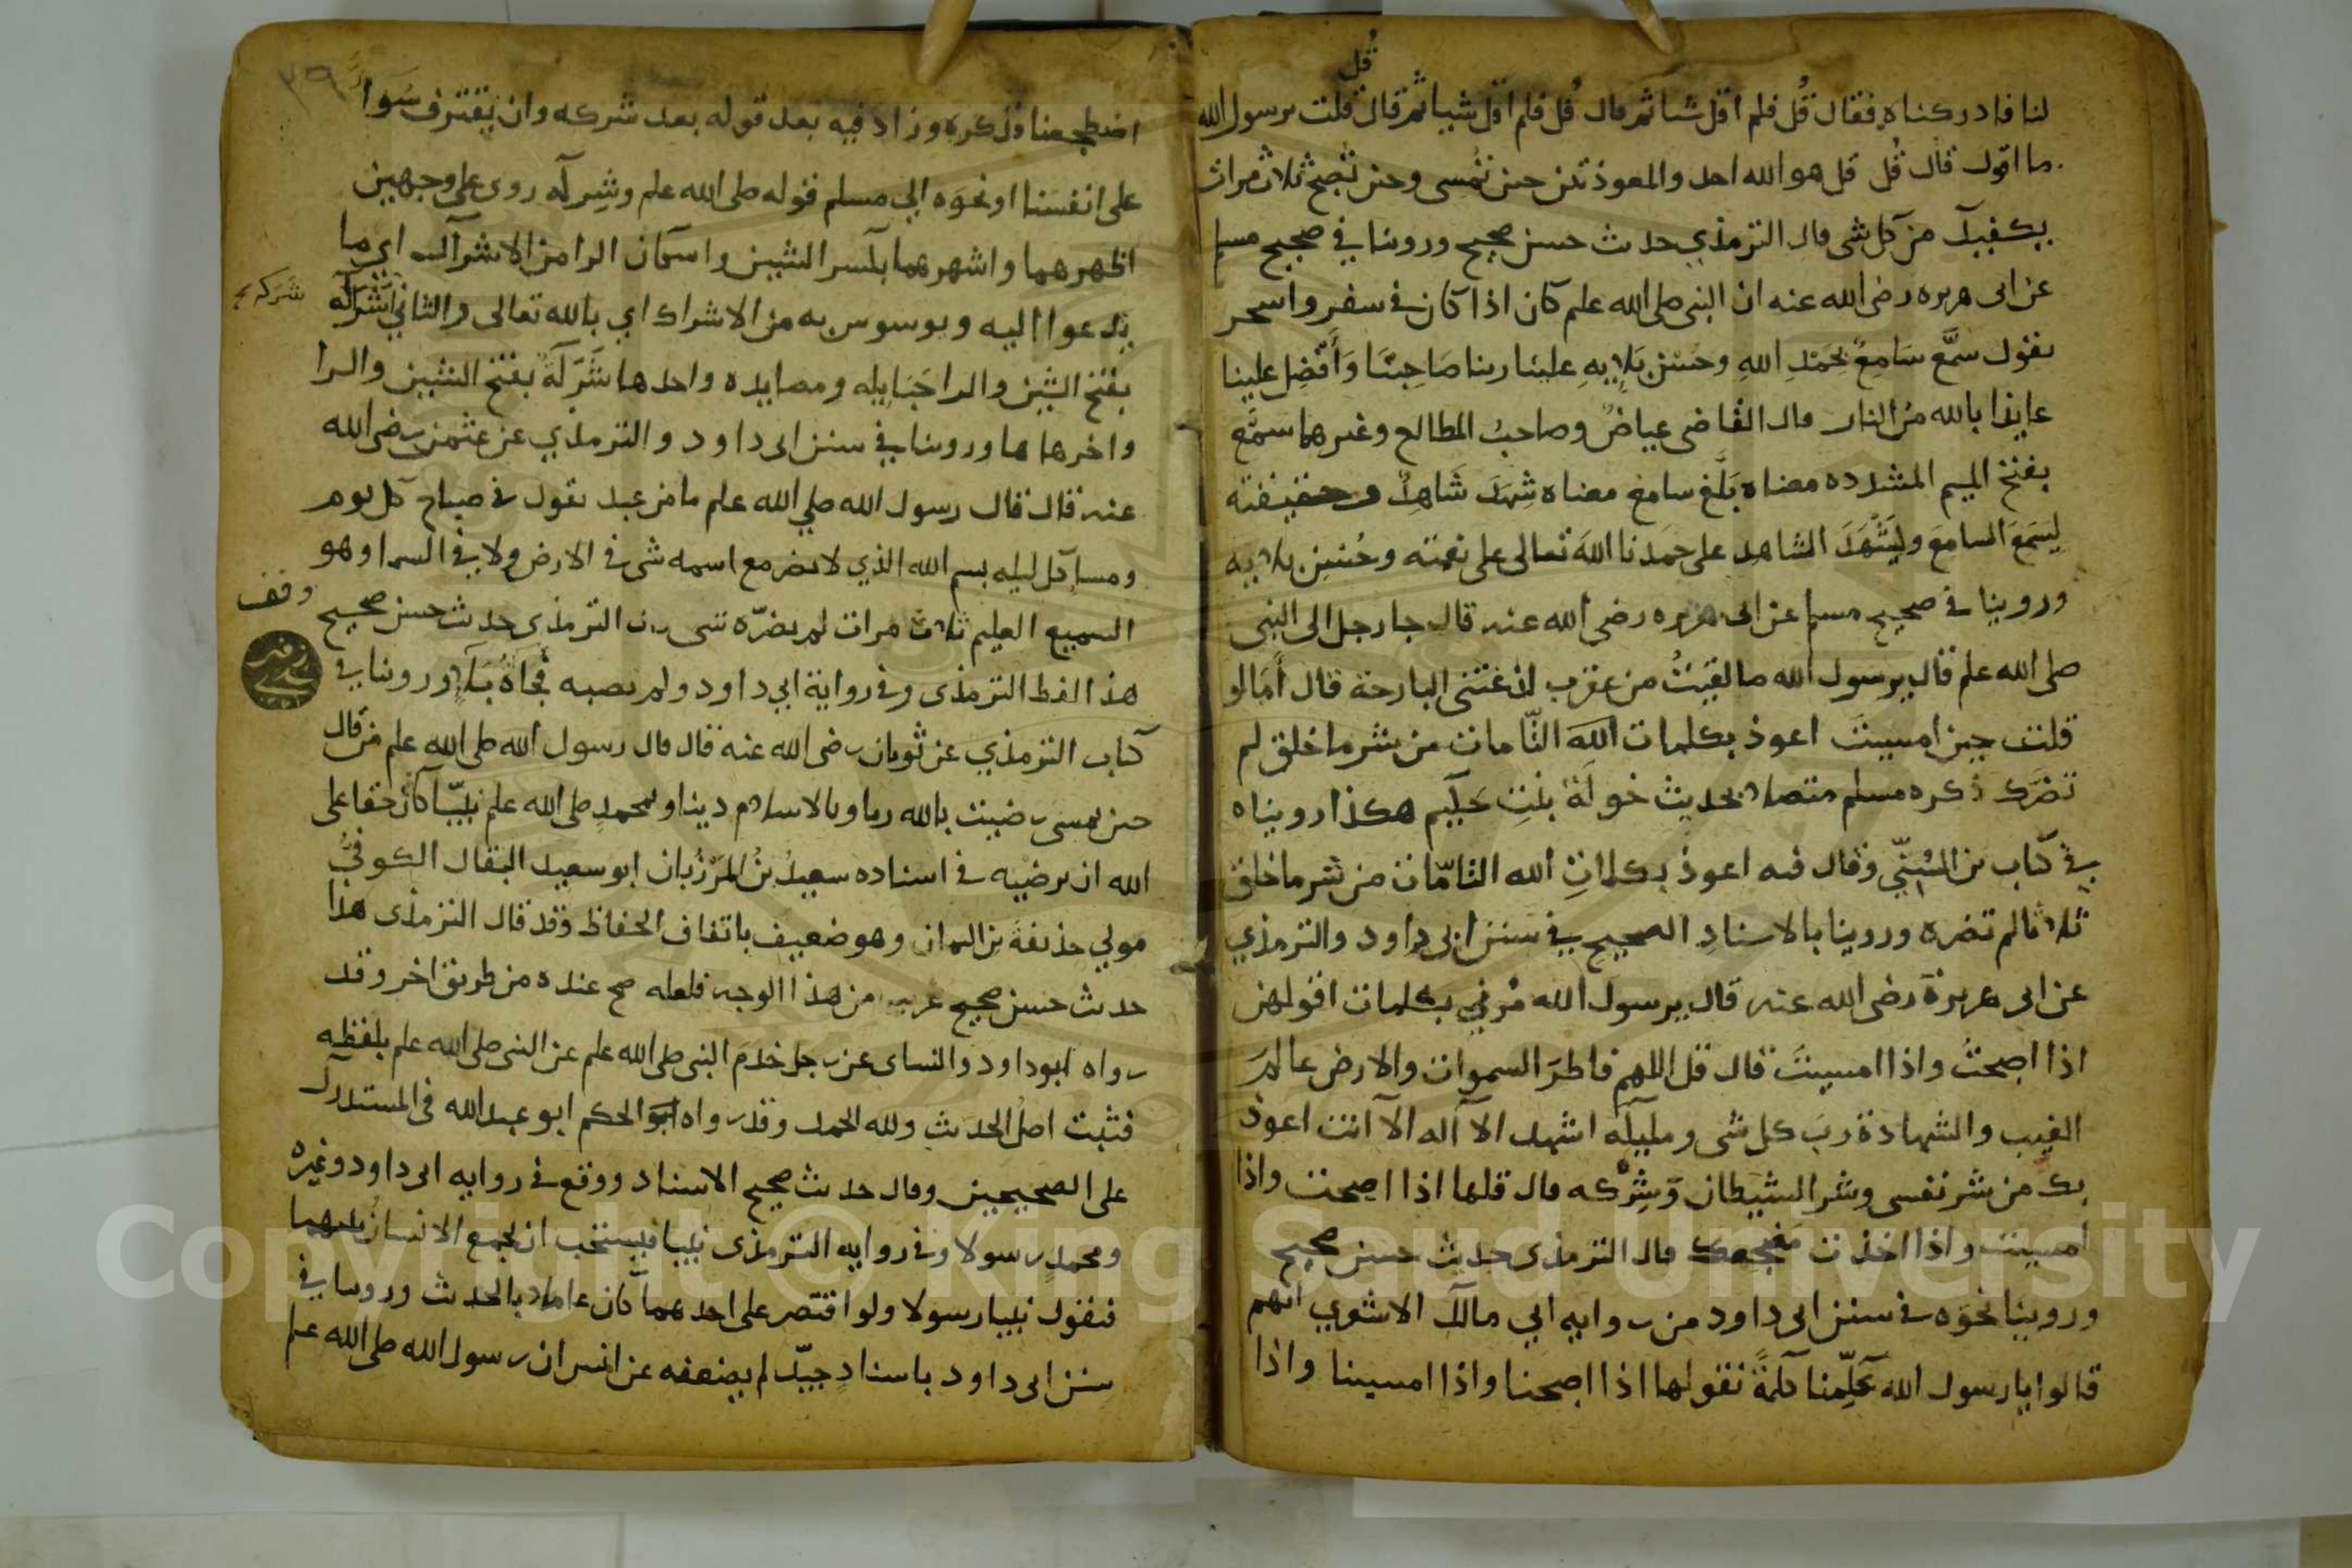 قل
لنا فادركناه فقال قُل فلم اقل شيا ثم قال قُل فلم اقل شيا ثم قال قلت يرسول الله
ما اقول قال قُل قل هو الله احد والمعوذتين حين تُمسى وحين تُصبح ثلاث مرات
يكفيك من كل شى قال الترمذي حديث حسن صحيح وروينا في صحيح مسلم
عن ابى هريره رضى الله عنه ان النبى صلى الله علم كان اذا كان في سفر واسحر
يقول سمَّع سَامِعٌ بحَمْدِ اللهِ وحُسْنِ بَلايِهِ علينا ربنا صَاحِبْنَا وَأَفْضِل علينا
عايذا بالله من النار قال القاضى عياضٌ وصاحبُ المطالع وغيرهما سمَّع
بفتح الميم المشدده معناه بَلَّغ سامع معناه شَهِدَ شَاهِدٌ وحقيقته
لِيَسَمعَ السامعَ وليَشْهَدَ الشاهد على حمدنا اللهَ تعالى على نعمته وحُسْنِ بلايه
وروينا في صحيح مسلم عن ابى هريره رضى الله عنه قال جا رجل الى النبى
صلى الله علم قال يرسول الله ما لقيتُ من عقرب لدغتنى البارحة قال أمَا لو
قلت حين امسيتَ اعوذ بكلمات الله التّامات من شر ما خلق لم
تضرك ذكره مسلم متصلا بحديث خولة بنتِ حَكيم هكذا رويناه
في كتاب بن السُنِّي وقال فيه اعوذ بكلماتِ الله التامّات من شر ما خلق
ثلاثا لم تضره وروينا بالاسنادِ الصحيح في سنن ابى داود والترمذي
عن ابى هريرة رضى الله عنه قال يرسول الله مُرني بكلمات اقولهن
اذا اصبحتُ واذا امسيتُ قال قل اللهم فاطرَ السموات والارض عالمَ
الغيب والشهادة ربَ كل شى ومليكه اشهد الا اله الا انت اعوذ
بك من شر نفسى وشر الشيطان وَشِرْكه قال قلها اذا اصبحت واذا
امسيت واذا اخذت مضجعك قال الترمذى حديث حسن صحيح
وروينا نحوَه في سنن ابى داود من روايه ابي مالك الاشعري انهم
قالوا يا رسول الله عَلِّمنا كلمةً نقولها اذا اصبحنا واذا امسينا واذا
٣٩
اضطجعنا فذكره وزاد فيه بعد قوله بعد شركه وان نقترف سَوا
على انفسنا او نحوَه الي مسلم قوله صلى الله علم وشِركه روى على وجهين
اظهرهما واشهرهما بكسر الشين واسكان الرا من الاشراك اي ما
يدعوا اليه ويوسوس به من الاشراك اي بالله تعالى والثاني شَرَكه
شركه
بفتح الشين والرا حَبَايِله ومصايده واحدها شَرَكَةٌ بفتح الشين والرا
واخرها ها وروينا في سنن ابى داود والترمذي عن عثمن رضى الله
عنه قال قال رسول الله صلي الله علم ما من عبد يقول في صباح كل يوم
ومسا كل ليله بسم الله الذي لا يضر مع اسمه شى في الارض ولا في السما وهو
السميع العليم ثلاث مرات لم يضرّه شى قال الترمذى حديث حسن صحيح
وقف
هذا لفظ الترمذى وفي رواية ابي داود ولم تصبه فُجأةُ بَلاءٍ وروينا في
كتاب الترمذي عن ثوبان رضى الله عنه قال قال رسول الله صلى الله علم من قال
حين يمسى رضيت بالله ربا وبالاسلام دينا وبمحمدٍ صلى الله علم نبيّا كان حقا على
الله ان يرضيه في اسناده سعيدُ بنُ المَرْزُبان ابو سعيد البقال الكوفيُّ
مولي حذيفةَ بن اليمان وهو ضعيف باتفاق الحفاظ وقد قال الترمذى هذا
حديث حسن صحيح غريب من هذا الوجه فلعله صح عنده من طريق اخر وقد
رواه ابوداود والنساى عن رجل خدمَ النبى صلى الله علم عن النبى صلى الله علم بلفظه
فثبت اصلُ الحديث ولله الحمد وقد رواه ابو الحكم ابو عبدالله في المستدرك
على الصحيحين وقال حديث صحيح الاسناد ووقع في روايه ابى داود وغيره
وبمحمدٍ رسولا وفي روايه الترمذى نبيا فيستحب ان يجمع الانسانُ بينهما
فيقول نبيا رسولا ولو اقتصر على احدهما كان عاملا بالحديث وروينا في
سنن ابى داود باسنادٍ جيّد لم يضعفه عن انس ان رسول الله صلى الله علم
Copyright © King Saud University